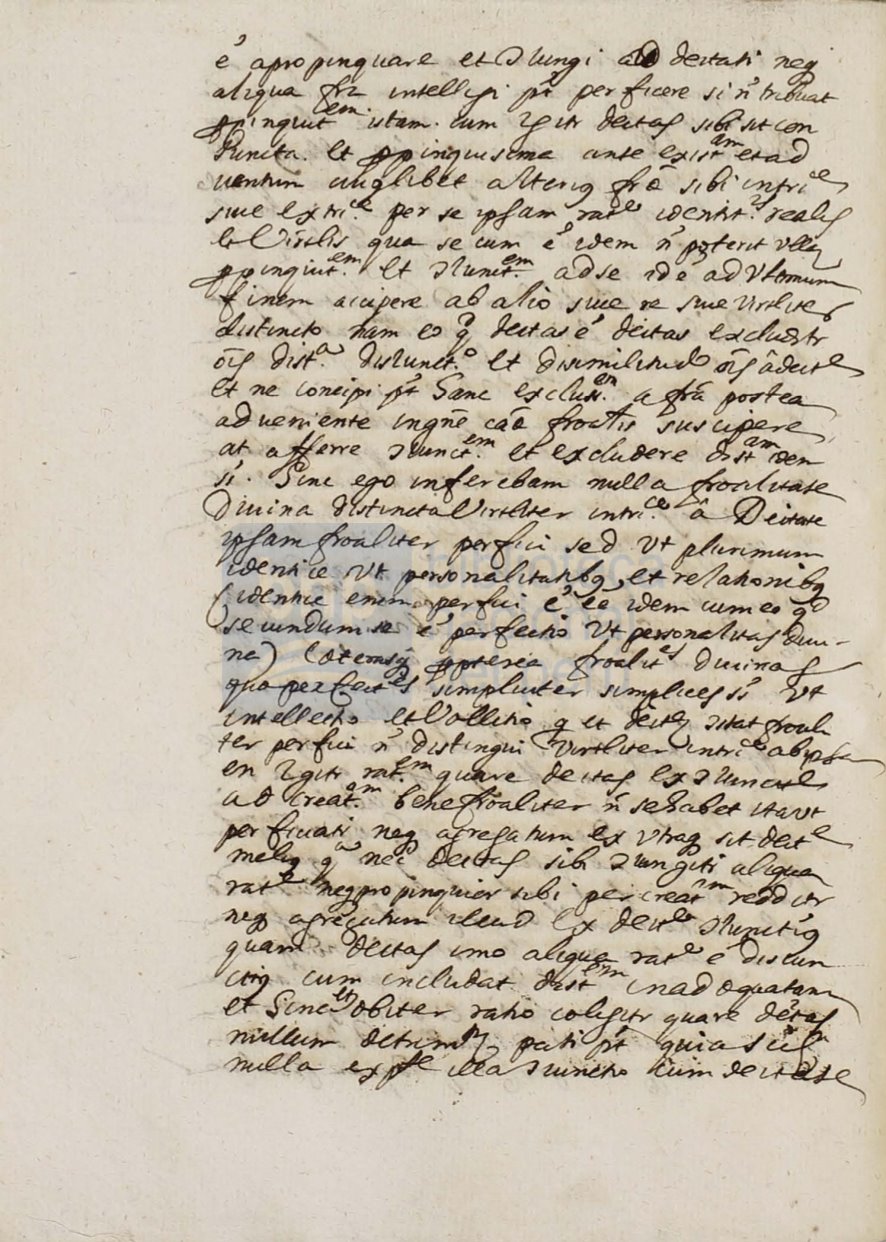 é apropinquare et Jungi ad deitati neq
aliqua fra intelligi pt perficere si ñ tribuat
ppinquit.em istam. cum igitr deitas sibi sit con
Juncta. et ppinquisima ante exist.am et ad
uentum cuiuslibet alterius frâ sibi intri.ce
siue extri.ce per se ipsam rat.e identit.s realis
et Virtlis qua se cum é idem ñ poterit ullam
ppinquit.em et Junct.em ad se id é ad Vltimum
finem accipere ab alio siue re siue Virtliter
distincto nam eo q deitas é deitas excludutr
ois dist.a disiunct.o et disimilitudo ois â deit.e
et ne concipi pt hanc exclus.em a frâ postea
adueniente in gñe caê froalis suscipere
at afferre Junct.em et excludere dist.am idem
st. hinc ego inferebam nulla froalitate
Diuina distincta Virtliter intri.ce â Deitate
ipsam froaliter perfici sed Vt plurimum
identice Vt personalitatibq, et relationibq
(identice enim perfici é ee idem cum eo qd
secundum se é perfectio Vt personalitas diui-
na) Coterasq ppterea froalit.es diuinas
qua perfect.es simpliciter simplices st Vt
intellectio et Vollitio q et deit.em Jubat froali
ter perfici ñ distingui Virtliter intri.ce ab ipsa
en igitr rat.em quare deitas ex Junct.e
ad creat.am bene froaliter ñ se habet ita Vt
perficiati neq agregatum ex Vtraq sit deit.e
melius q.a nec deitas sibi Jungiti aliqua
rat.e neq propinquior sibi per creat.am redditr
neq agregatum illud ex deit.e Junctius
quam deitas imo aliqua rat.e é disiun
ctius cum includat dist.em inadoquatam
et hinc obiter ratio coligitr quare deitas
nullum detrim.tum pati pt quia scil.
nulla ex pte illa Junctio cum deitate